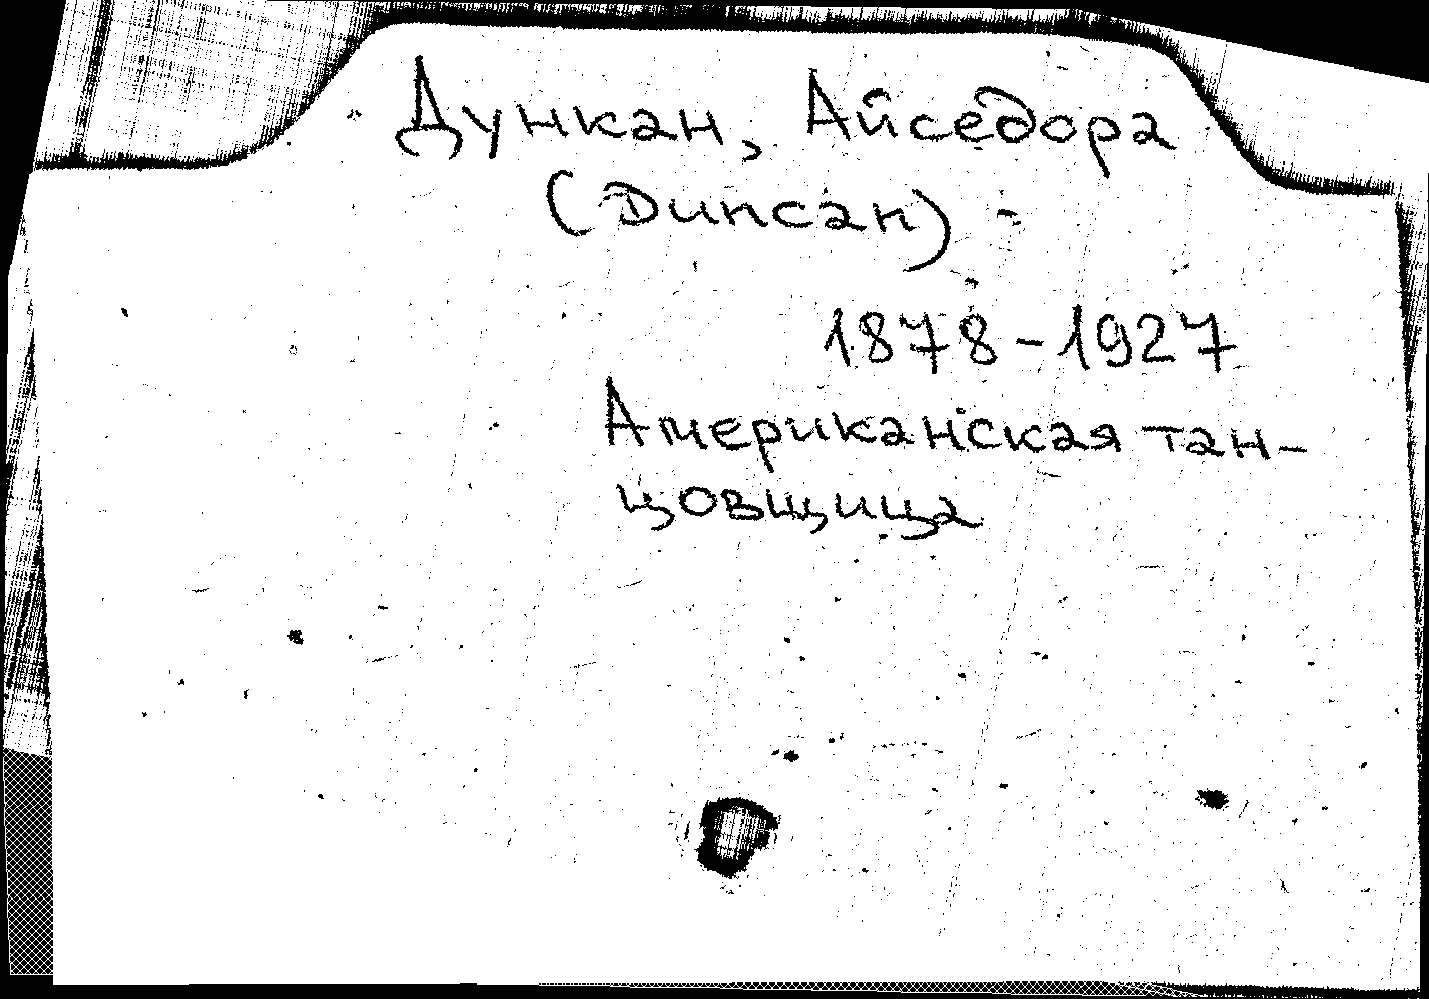 Дункан, Айседора
(Дипсан) -
1878-1927
Американская тан-
цовщица